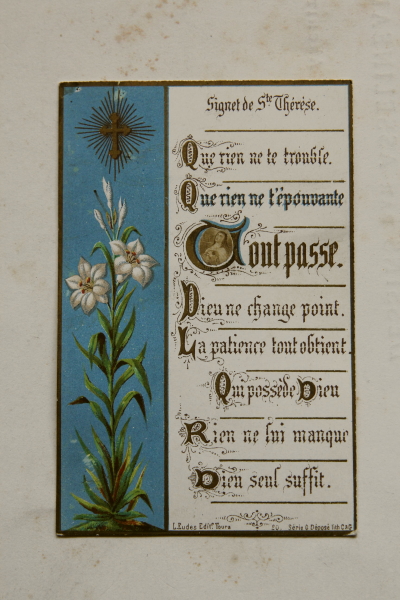 Signet de Ste Thérèse.
Que rien ne te trouble.
Que rien ne t'épouvante
Tout passe.
Dieu ne change point.
La patience tout obtient.
Qui possède Dieu
Rien ne lui manque
Dieu seul suffit.
L. Eudes Editr. Tours Série G Déposé